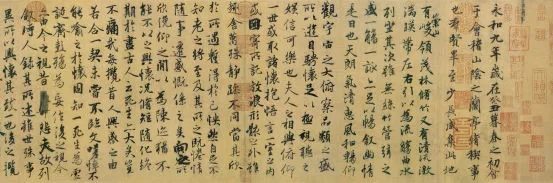 永和九年歲在癸丑暮春之初會
于會稽山陰之蘭亭脩稧事
也群賢畢至少長咸集此地
有崇山峻領茂林脩竹又有清流激
湍暎帶左右引以為流觴曲水
列坐其次雖無絲竹管弦之盛
一觴一詠亦足以暢敘幽情
是日也天朗氣清惠風和暢仰
觀宇宙之大俯察品類之盛
所以遊目騁懷足以極視聽之
娛信可樂也夫人之相與俯仰
一世或取諸懷抱悟言一室之內
或因寄所託放浪形骸之外雖
趣舍萬殊靜躁不同當其欣
於所遇暫得於己怏然自足不
知老之將至及其所之既惓情
隨事遷感慨係之矣向之所
欣俛仰之閒以為陳迹猶不
能不以之興懷況脩短隨化終
期於盡古人云死生亦大矣豈
不痛哉每攬昔人興感之由
若合一契未嘗不臨文嗟悼不
能喻之於懷固知一死生為虛
誕齊彭殤為妄作後之視今
亦由今之視昔悲夫故列
敘時人錄其所述雖世殊事
異所以興懷其致一也後之攬